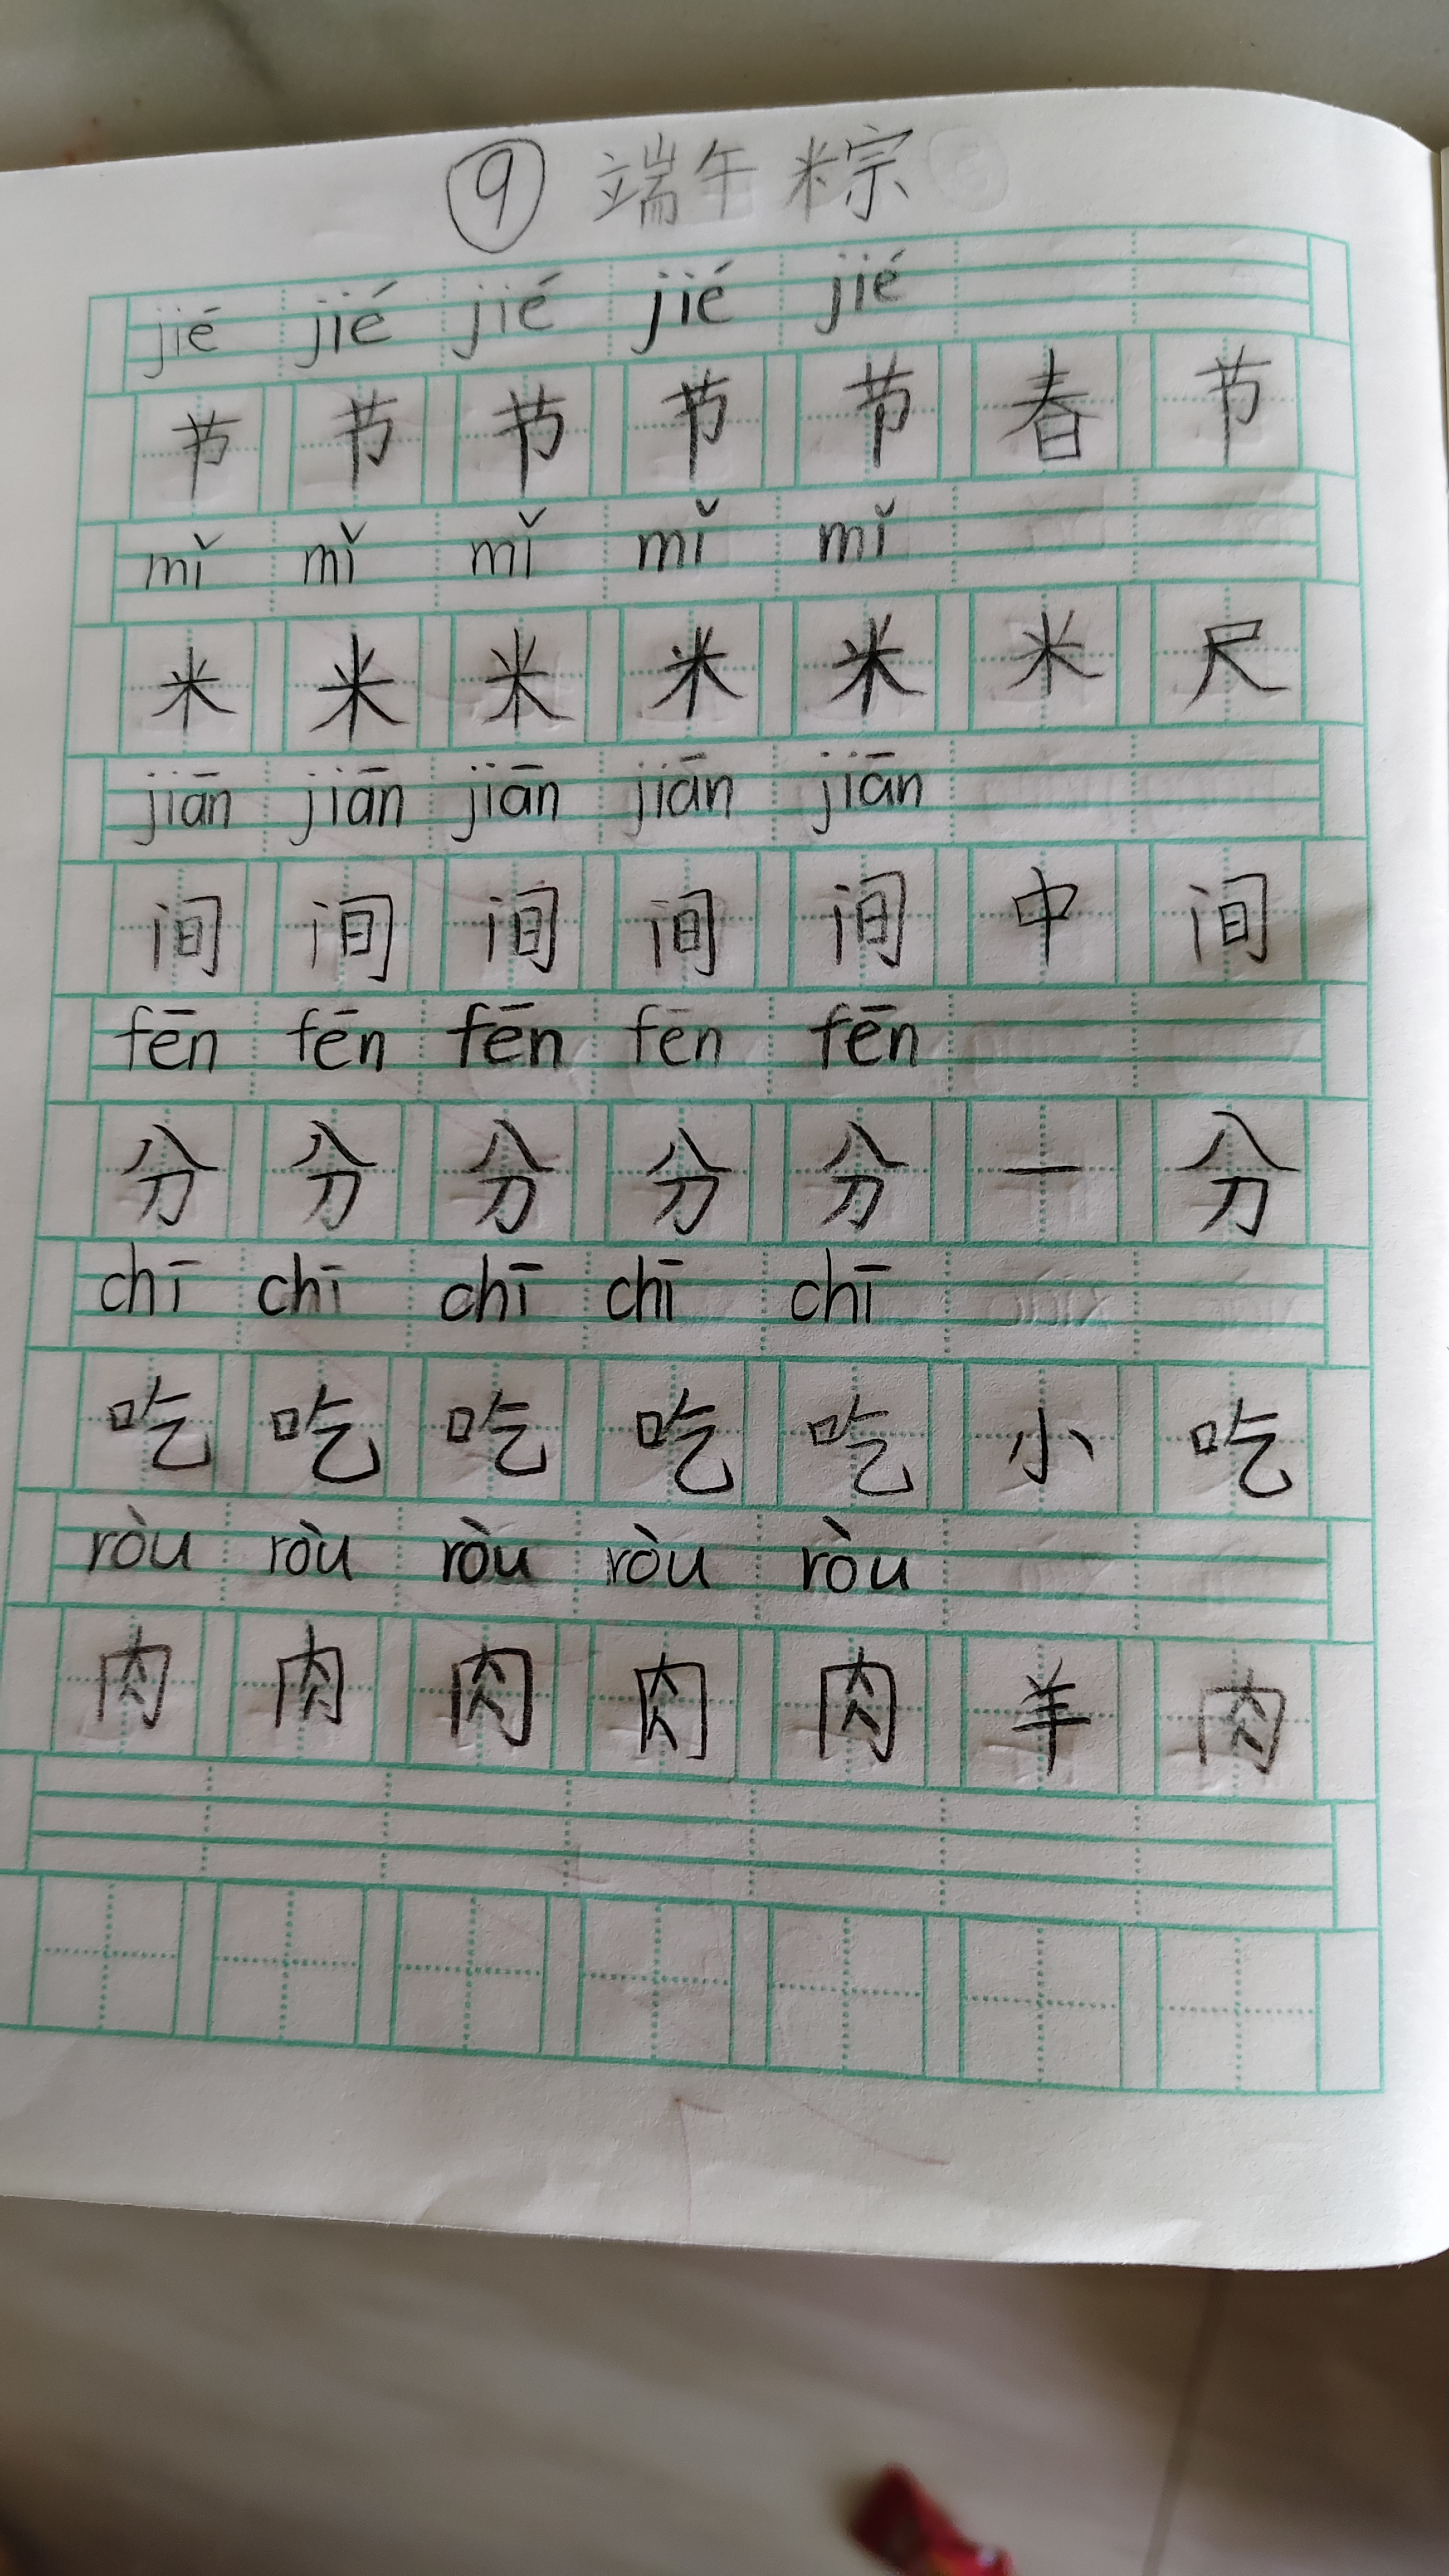 ⑨ 端午粽
jié jié jié jié jié
节 节 节 节 节 春 节
mǐ mǐ mǐ mǐ mǐ
米 米 米 米 米 米 尺
jiān jiān jiān jiān jiān
间 间 间 间 间 中 间
fēn fēn fēn fēn fēn
分 分 分 分 分 一 分
chī chī chī chī chī
吃 吃 吃 吃 吃 小 吃
ròu ròu ròu ròu ròu
肉 肉 肉 肉 肉 羊 肉